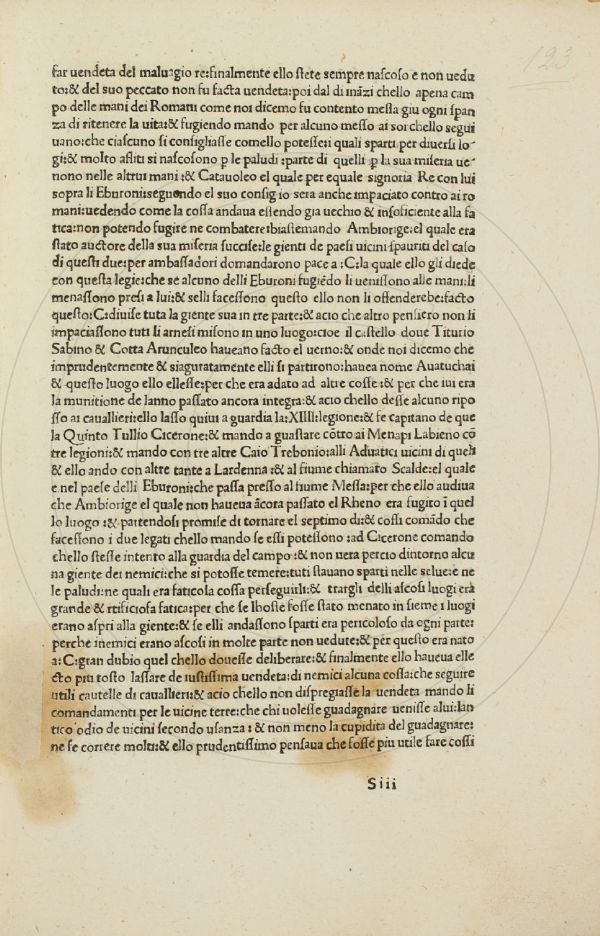 123
far uendeta del maluagio re:finalmente ello stete sempre nascoso e non uedu
to:& del suo peccato non fu facta uendeta:poi dal di inãzi chello apena cam
po delle mani dei Romani come noi dicemo fu contento messa giu ogni span
za di ritenere la uita:& fugiendo mando per alcuno messo ai soi chello segui
uano:che ciascuno si consigliasse comello potesse:i quali sparti per diuersi lo
gi:& molto afliti si nascosono p le paludi:parte di quelli p la sua miseria ue-
nono nelle altrui mani:& Catauoleo el quale per equale signoria Re con lui
sopra li Eburoni:seguendo el suo consiglio sera anche impaciato contro ai ro
mani:uedendo come la cossa andaua essendo gia uechio & insoficiente alla fa
tica:non potendo fugire ne combatere:biastemando Ambiorige:el quale era
stato auctore della sua miseria succise:le gienti de paesi uicini spauriti del caso
di questi due:per ambassadori domandarono pace a :C:la quale ello gli diede
con questa legie:che se alcuno delli Eburoni fugiẽdo li uenissono alle mani:li
menassono presi a lui:& selli facessono questo ello non li offenderebe:facto
questo:C:diuise tuta la giente sua in tre parte:& acio che altro pensiero non li
impaciassono tuti li arnesi misono in uno luogo:cioe il castello doue Titurio
Sabino & Cotta Arunculeo haueano facto el uerno:& onde noi dicemo che
imprudentemente & siaguratamente elli si partirono:hauea nome Auatuchai
& questo luogo ello ellesse:per che era adato ad altre cosse:& per che iui era
la munitione de lanno passato ancora integra:& acio chello desse alcuno ripo
sso ai cauallieri:ello lasso quiui a guardia la:XIIII:legione:& fe capitano de que
la Quinto Tullio Cicerone:& mando a guastare cõtro ai Menapi Labieno cõ
tre legioni:& mando con tre altre Caio Trebonio:alli Aduatici uicini di queli
& ello ando con altre tante a Lardenna:& al fiume chiamato Scalde:el quale
e nel paese delli Eburoni:che passa presso al fiume Messa:per che ello audiua
che Ambiorige el quale non haueua ãcora passato el Rheno era fugito ĩ quel
lo luogo :& partendosi promise di tornare el septimo di:& cossi comãdo che
facessono i due legati chello mando se essi potessono :ad Cicerone comando
chello stesse intento alla guardia del campo:& non uera percio dintorno alcu
na giente dei nemici:che si potosse temere:tuti stauano sparti nelle selue:e ne
le paludi:ne quali era faticola cossa perseguirli:& trargli delli ascosi luogi erã
grande & rtificiosa fatica:per che se lhoste fosse stato menato in sieme i luogi
erano aspri alla giente:& se elli andassono sparti era pericoloso da ogni parte:
perche inemici erano ascosi in molte parte non uedute:& per questo era nato
a:C:gran dubio quel chello douesse deliberare:& finalmente ello haueua elle
cto piu tosto lassare de iustissima uendeta:di nemici alcuna cossa:che seguire
utili cautelle di cauallieri:& acio chello non dispregiasse la uendeta mando li
comandamenti per le uicine terre:che chi uolesse guadagnare uenisse alui:lan
tico odio de uicini secondo usanza :& non meno la cupidita del guadagnare:
ne fe correre molti:& ello prudentissimo pensaua che fosse piu utile fare cossi
Siii